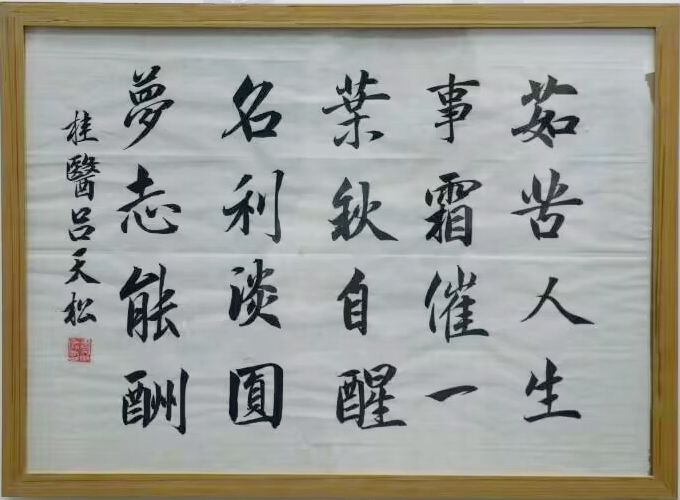 茹苦人生
事霜催一
葉秋自醒
名利淡圓
夢志能酬
桂醫呂天松